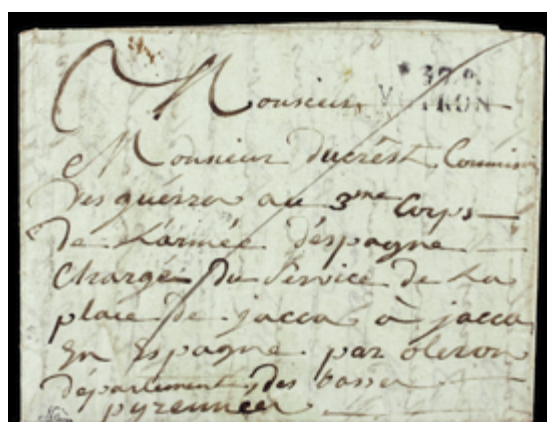 P.37.P.
Monsieur VOIRON
Monsieur ducrest Commissre
Des guerres au 3me Corps
De L'armée d'Espagne
Chargé Du Service De La
place de jacca à jacca
en Espagne. par oleron
département des basses
pyrennées